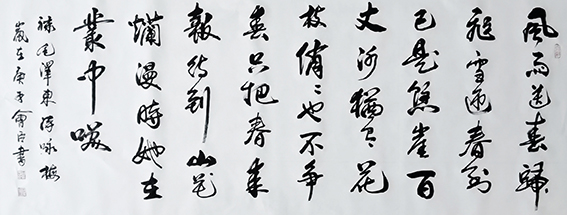 風雨送春歸
飛雪迎春到
已是懸崖百
丈冰猶有花
枝俏〻也不争
春只把春来
報待到山花
爛漫時她在
叢中笑
錄毛澤東詩詠梅
歲在庚子書